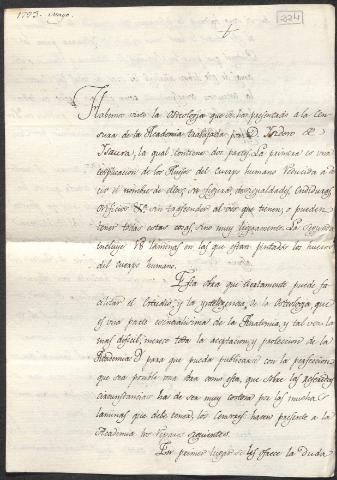 1793. Mayo.
224
Habemos visto la Osteologia que se ha presentado a la Cen
sura de la Academia, trabajada por D. Isidoro de
Isaura, la qual contiene dos partes. La primera es una
explicacion de los Huesos del cuerpo humano reducida a de
cir el nombre de ellos, su figura, desigualdades, Endiduras,
Orificios &c. sin trascender al uso que tienen, o pueden
tener todas estas cosas, sino muy ligeramente. La segunda
incluye 18 laminas en las que estan pintados los huesos
del cuerpo humano.
Esta obra que ciertamente puede fa
cilitar el estudio, y la ynteligencia de la Osteologia, que
es una parte esencialisima de la Anatomia, y tal vez la
mas dificil, merece toda la aceptacion y proteccion de la
Academia para que pueda publicarse con la perfeccion
que sea posible una obra como esta, que sobre las referidas
circunstancias ha de ser muy costosa por las muchas
laminas que debe tener, los Censores hacen presente a la
Academia los reparos siguientes.
En primer lugar se les ofrece la duda